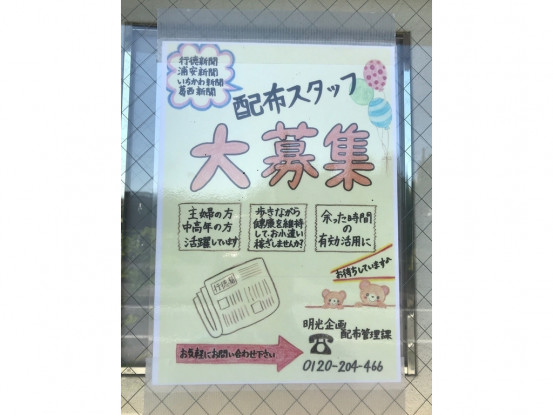 行徳新聞
浦安新聞
いちかわ新聞
葛西新聞
配布スタッフ
大募集
主婦の方
中高年の方
活躍しています
歩きながら
健康を維持
して、お小遣い
稼ぎしませんか?
余った時間
の
有効活用に
お待ちしています
行徳新
お気軽にお問い合わせ下さい
明光企画
配布管理課
0120-204-466